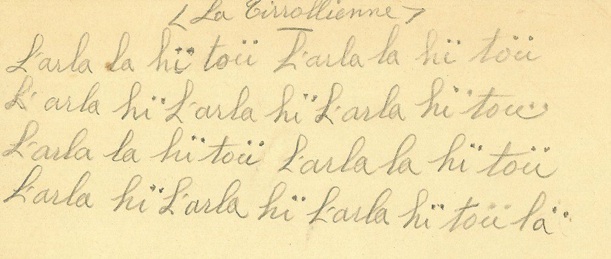 ( La Tirrollienne )
L'arla la hï toü L'arla la hï toü
L'arla hï L'arla hï L'arla hï toü
L'arla la hï toü L'arla la hï toü
L'arla hï L'arla hï L'arla hï toü lä